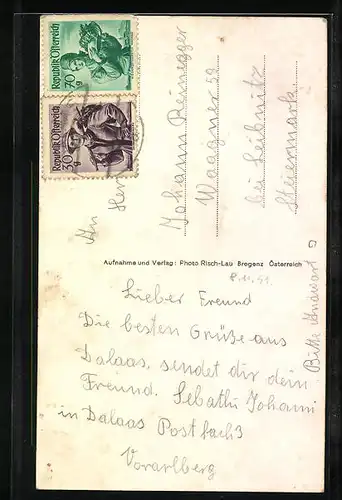 Republik Österreich
70 g
Republik Österreich
30 g
An Herr
Johann Reinegger
Waagner 59
bei Leibnitz
Steiermark
Aufnahme und Verlag: Photo Risch-Lau Bregenz Österreich
Lieber Freund
Die besten Grüße aus
Dalaas, sendet dir dein
Freund. Sebathi Johann
in Dalaas Postfach 3
Vorarlberg
Bitte